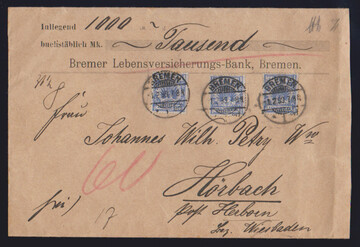 Inliegend 1000
buchstäblich Mk. ~ Tausend ~
Bremer Lebensversicherungs-Bank, Bremen.
BREMEN BREMEN BREMEN
Für
Johannes Wilh. Petry Ww
60
Hörbach
Post Herborn
frei! 17 Bez. Wiesbaden